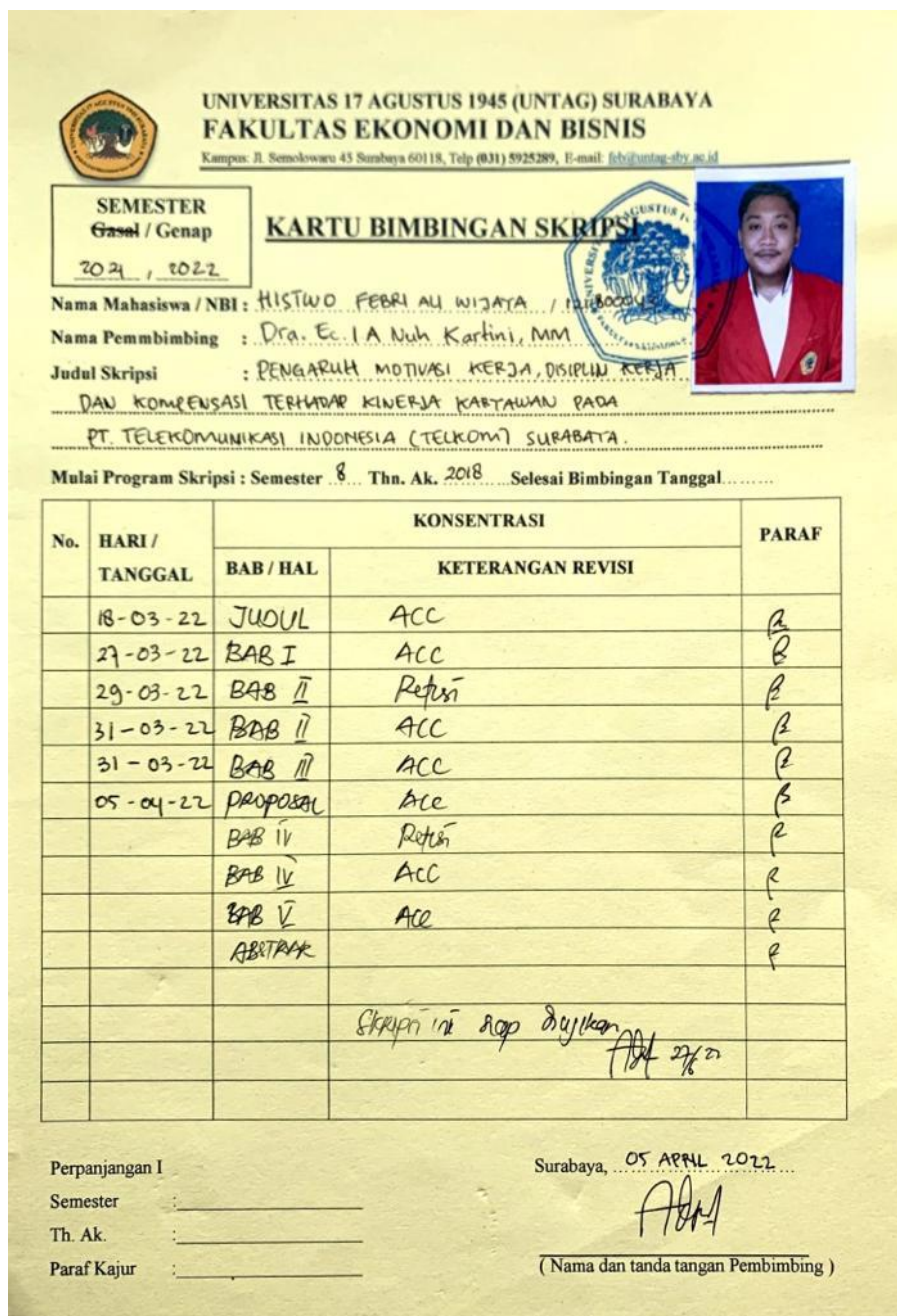 UNIVERSITAS 17 AGUSTUS 1945 (UNTAG) SURABAYA
FAKULTAS EKONOMI DAN BISNIS
Kampus: Jl. Semolowaru 45 Surabaya 60118, Telp (031) 5925289, E-mail: feb@untag-sby.ac.id
SEMESTER
Gasal / Genap
2021 , 2022
KARTU BIMBINGAN SKRIPSI
Nama Mahasiswa / NBI : HISTWO FEBRI ALI WIJAYA /
Nama Pemmbimbing : Dra. Ec. I A Nuh Kartini, MM
Judul Skripsi : PENGARUH MOTIVASI KERJA, DISIPLIN KERJA
DAN KOMPENSASI TERHADAP KINERJA KARYAWAN PADA
PT. TELEKOMUNIKASI INDONESIA (TELKOM) SURABAYA.
Mulai Program Skripsi : Semester 8 Thn. Ak. 2018 Selesai Bimbingan Tanggal.........
No. HARI / TANGGAL KONSENTRASI PARAF
BAB / HAL KETERANGAN REVISI
18-03-22 JUDUL ACC
27-03-22 BAB I ACC
29-03-22 BAB II Refisi
31-03-22 BAB II ACC
31-03-22 BAB III ACC
05-04-22 PROPOSAL Acc
BAB IV Refisi
BAB IV ACC
BAB V Acc
ABSTRAK
Skripsi ini siap diujikan
27/6 22
Perpanjangan I
Surabaya, 05 APRIL 2022
Semester :
Th. Ak. :
Paraf Kajur :
( Nama dan tanda tangan Pembimbing )